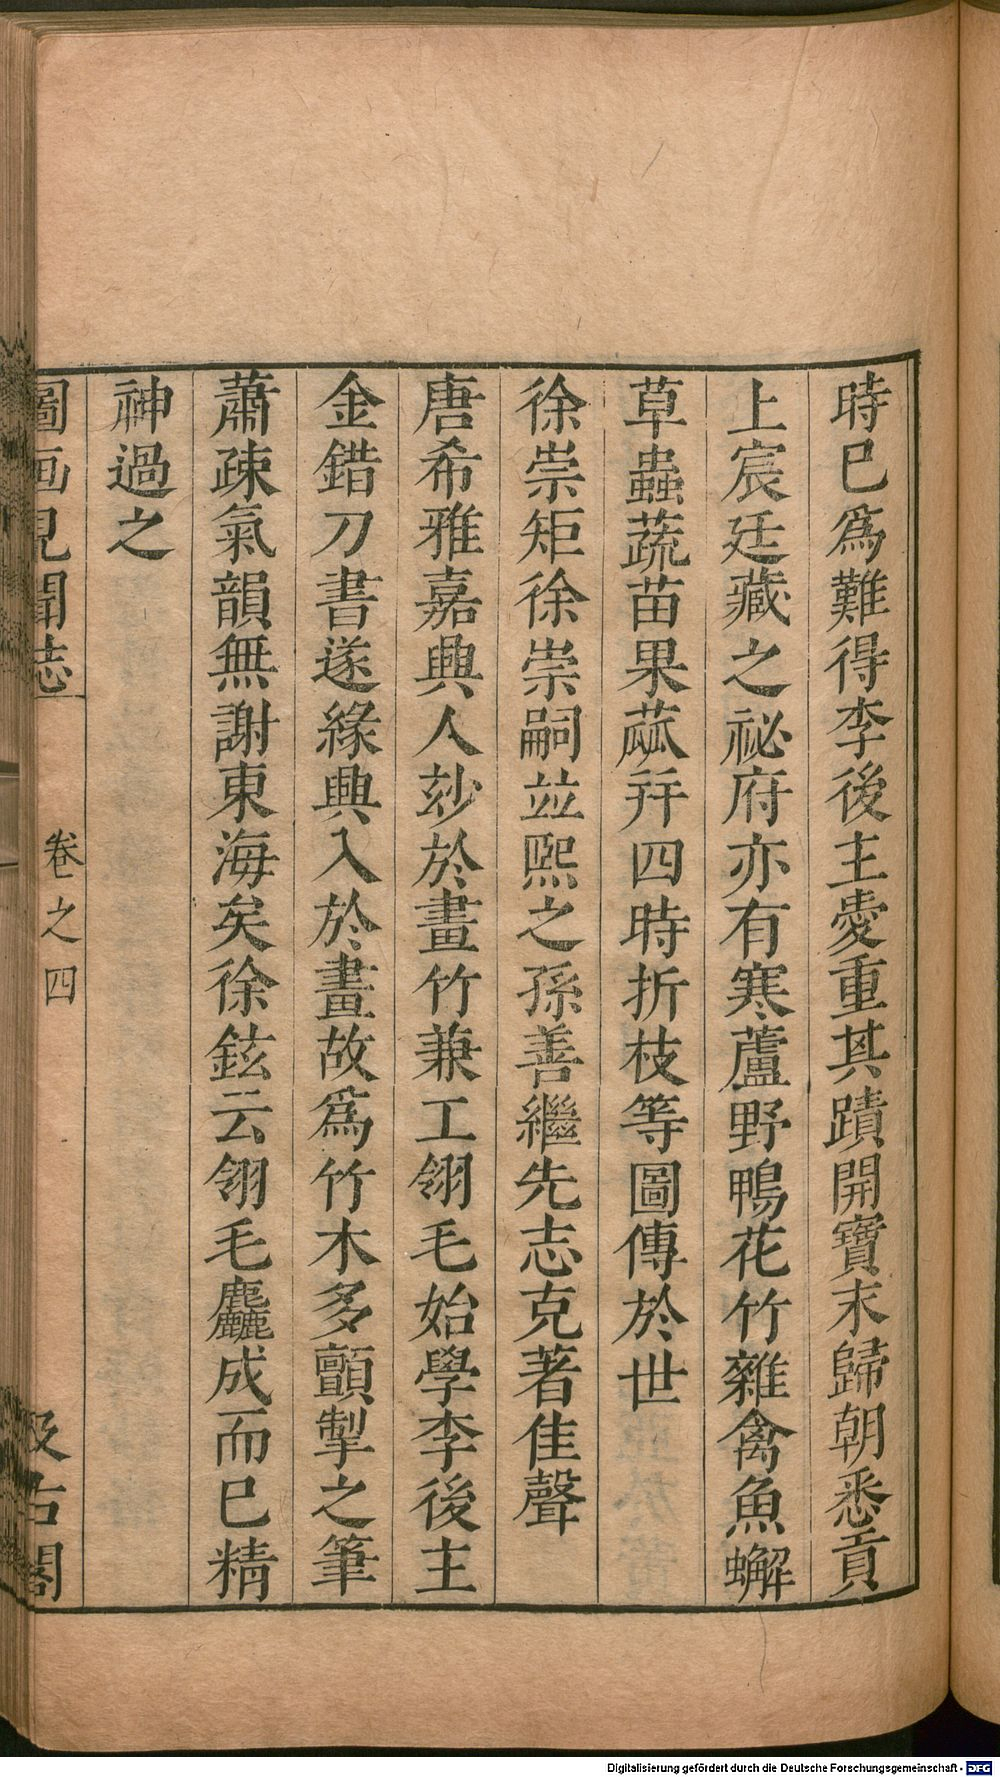 時已爲難得李後主愛重其蹟開寶末歸朝悉貢
上宸廷藏之祕府亦有寒蘆野鴨花竹雜禽魚蠏
草蟲蔬苗果蓏幷四時折枝等圖傳於世
徐崇矩徐崇嗣竝熙之孫善繼先志克著佳聲
唐希雅嘉興人玅於畫竹兼工翎毛始學李後主
金錯刀書遂緣興入於畫故爲竹木多顫掣之筆
蕭疎氣韻無謝東海矣徐鉉云翎毛麤成而已精
神過之
圖画見聞志 卷之四 汲古閣
Digitalisierung gefördert durch die Deutsche Forschungsgemeinschaft - DFG